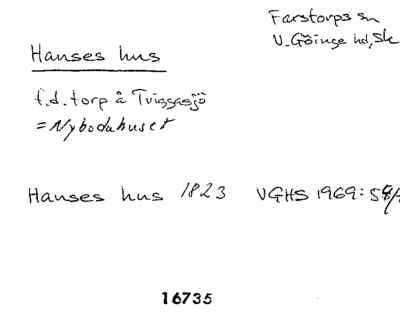 Farstorps sn
V. Göinge hd, Sk
Hanses hus
f.d. torp å Tviggasjö
= Nybodahuset
Hanses hus 1823 VGHS 1969:
16735